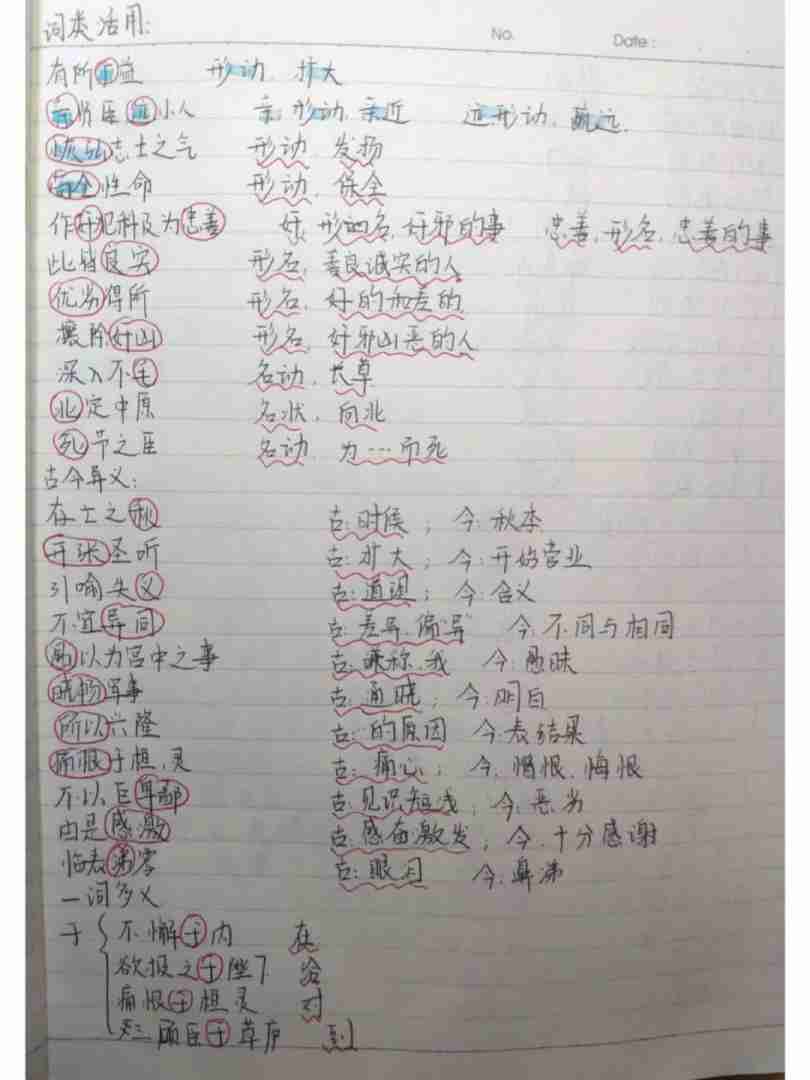 词类活用:
No.
Date:
有所广益 形动,扩大
亲贤臣远小人 亲,形动,亲近 远,形动,疏远.
恢弘志士之气 形动,发扬
苟全性命 形动,保全
作奸犯科及为忠善 奸,形动名,奸邪的事 忠善,形名,忠善的事
此皆良实 形名,善良诚实的人
优劣得所 形名,好的和差的
攘除奸凶 形名,奸邪凶恶的人
深入不毛 名动,长草
北定中原 名状,向北
死节之臣 名动,为…而死
古今异义:
存亡之秋 古:时候; 今:秋季
开张圣听 古:扩大; 今:开始营业
引喻失义 古:道理; 今:含义
不宜异同 古:差异、偏异 今:不同与相同
愚以为宫中之事 古:谦称,我 今:愚昧
晓畅军事 古:通晓; 今:明白
所以兴隆 古:的原因 今:表结果
痛恨于桓,灵 古:痛心; 今:憎恨、悔恨
不以臣卑鄙 古:见识短浅; 今:恶劣
由是感激 古:感奋激发; 今:十分感谢
临表涕零 古:眼泪 今:鼻涕
一词多义
于 不懈于内 在
欲报之于陛下 给
痛恨于桓灵 对
三顾臣于草庐 到